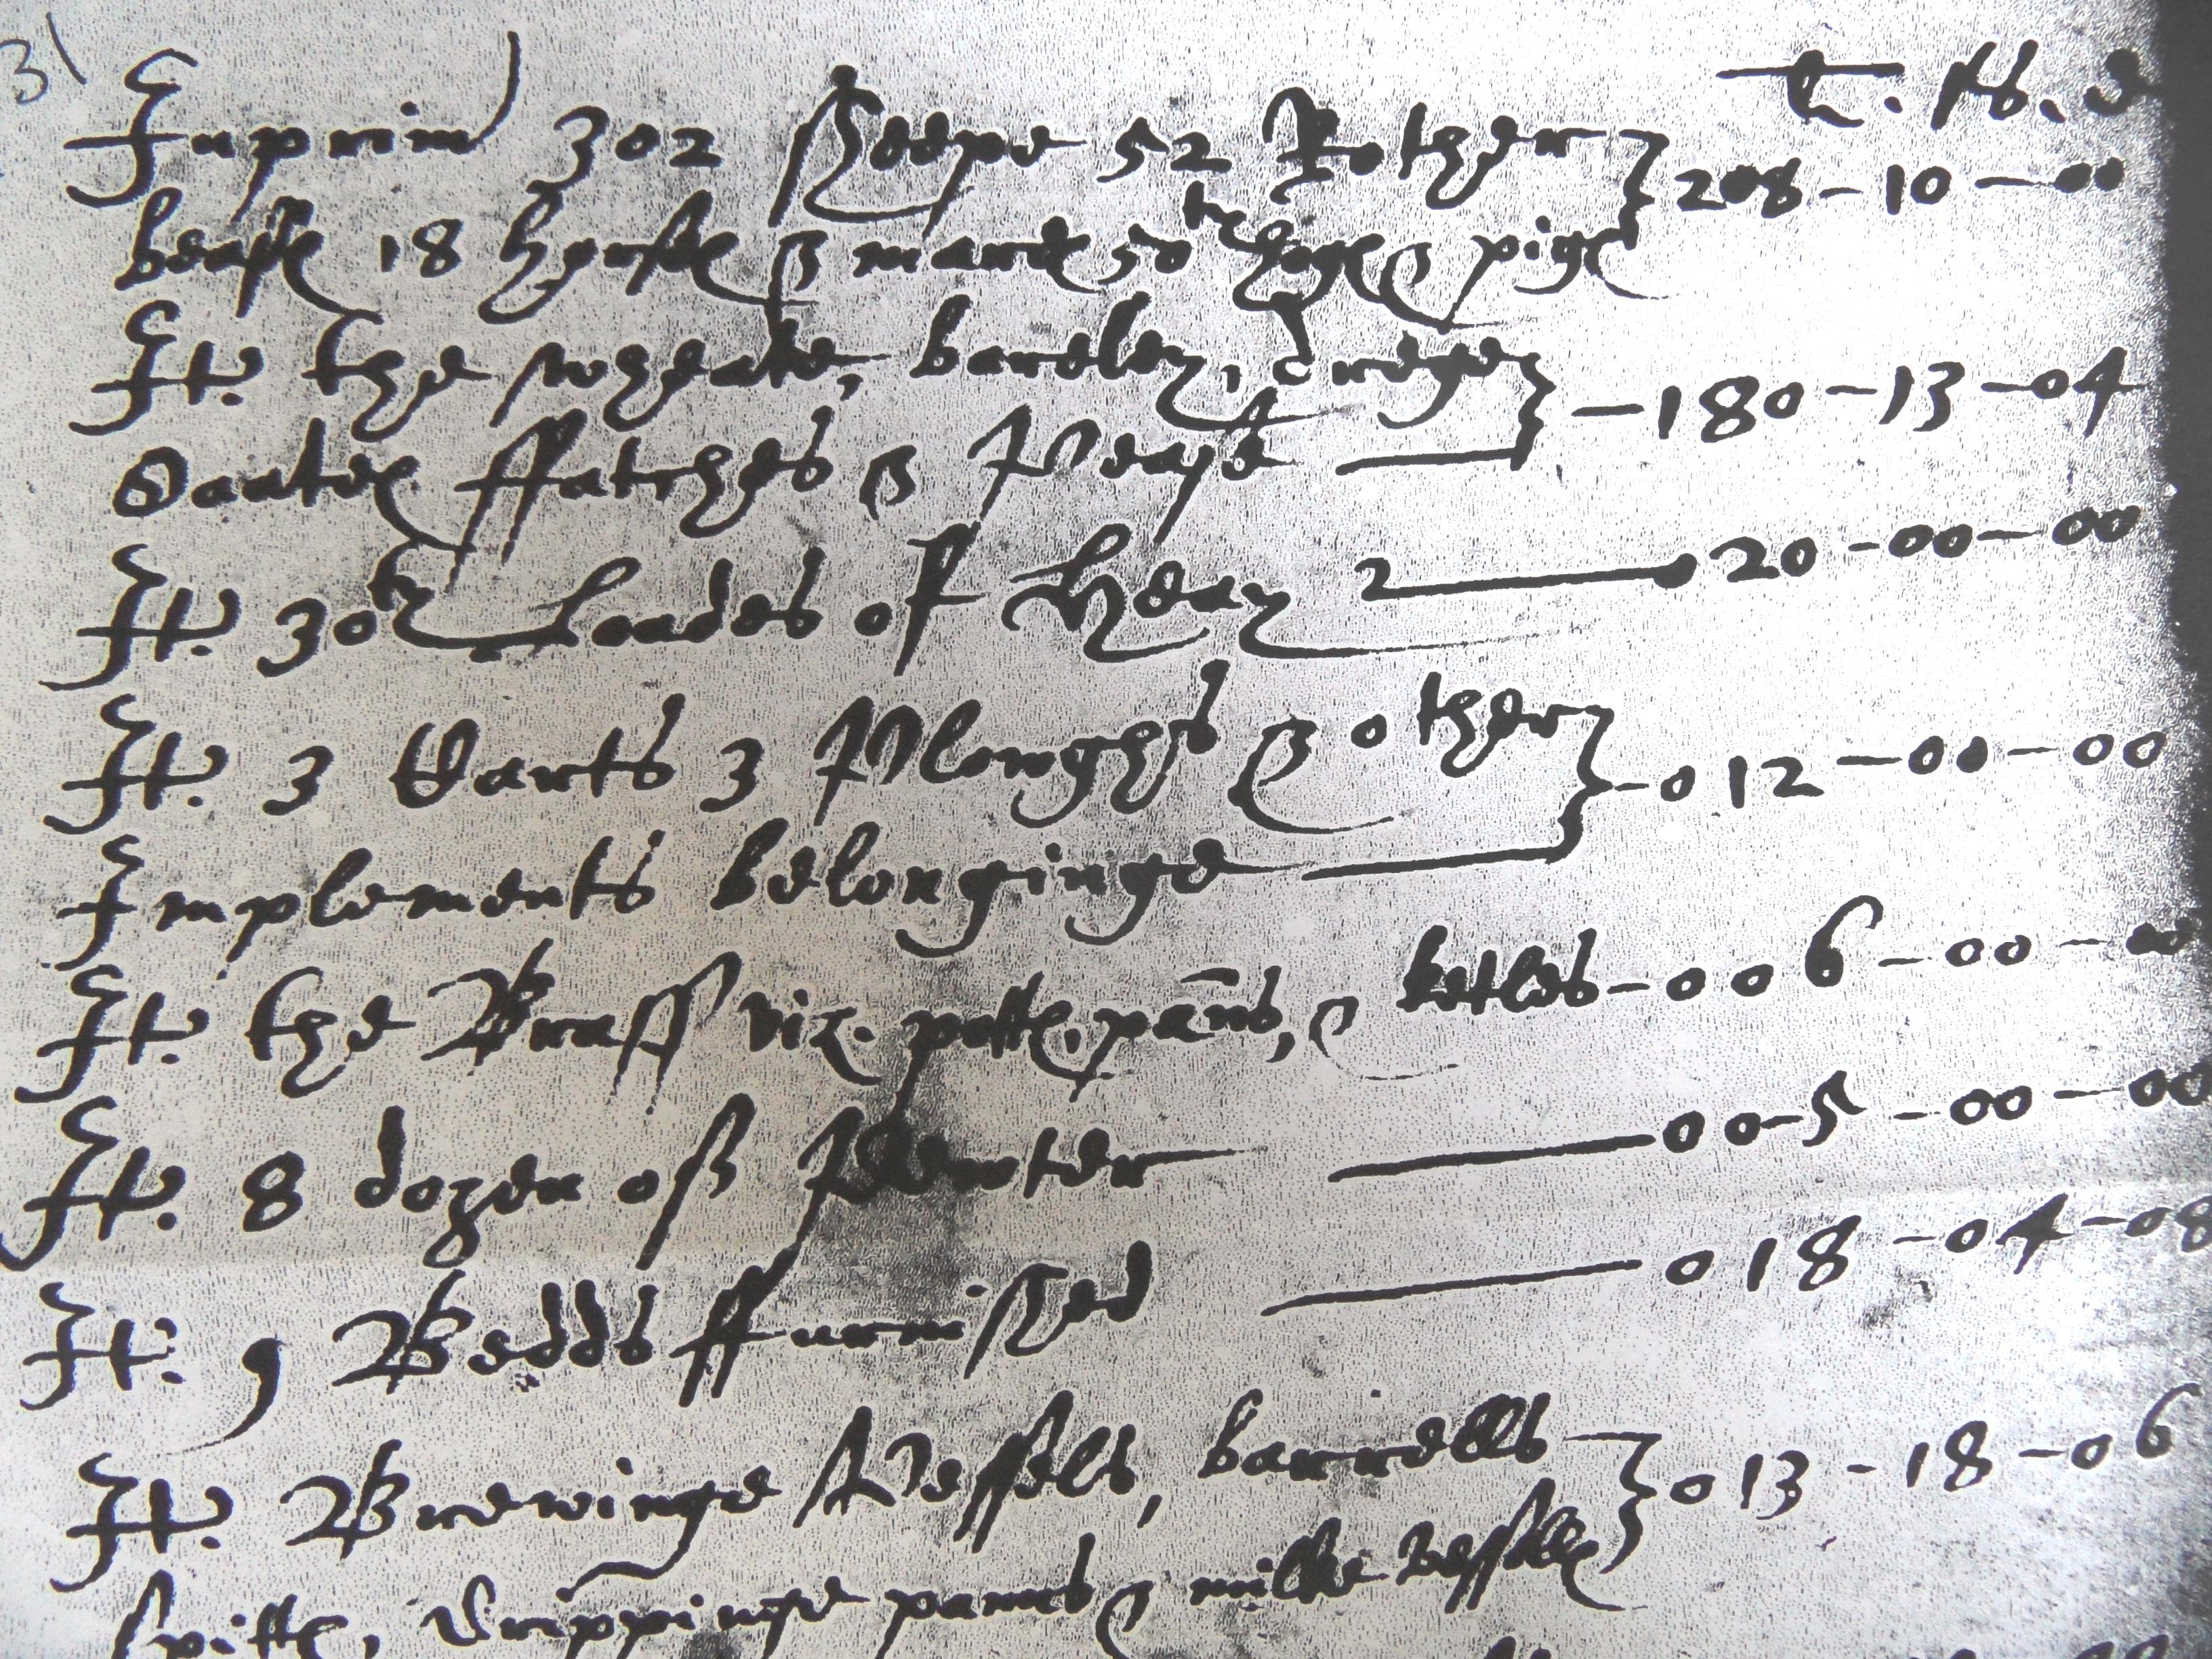 31
£. s. d
Inprim 302 Sheepe 52 Rother
beast(es) 18 horse & mares 50tie hoges & pigs 208-10-00
It. the wheate, bareley, drege
Oates ffatches & Pease — 180-13-04
It. 30tie Loades of Heay — 20-00-00
It. 3 Carts 3 Ploughes & other
Implements belonginge — 012-00-00
It. the Brass viz. potts, pans, & ketles - 006-00-00
It. 8 dozen of Pewter — 005-00-00
It. 9 Bedds ffurnished — 018-04-08
It. Brewinge Vessels, barrells
spitts, Drippinge panns & milke vessells 013-18-06